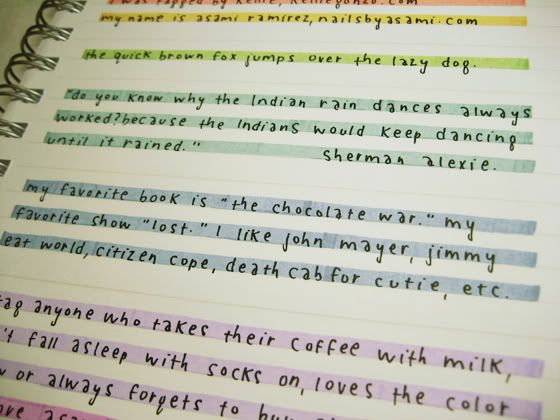 was tagged by
my name is asami ramirez, nailsbyasami.com
the quick brown fox jumps over the lazy dog.
"do you know why the Indian rain dances always
worked? because the Indians would keep dancing
until it rained."
sherman alexie.
my favorite book is "the chocolate war." my
favorite show "lost." I like john mayer, jimmy
eat world, citizen cope, death cab for cutie, etc.
tag anyone who takes their coffee with milk,
't fall asleep with socks on, loves the color
or always forgets to